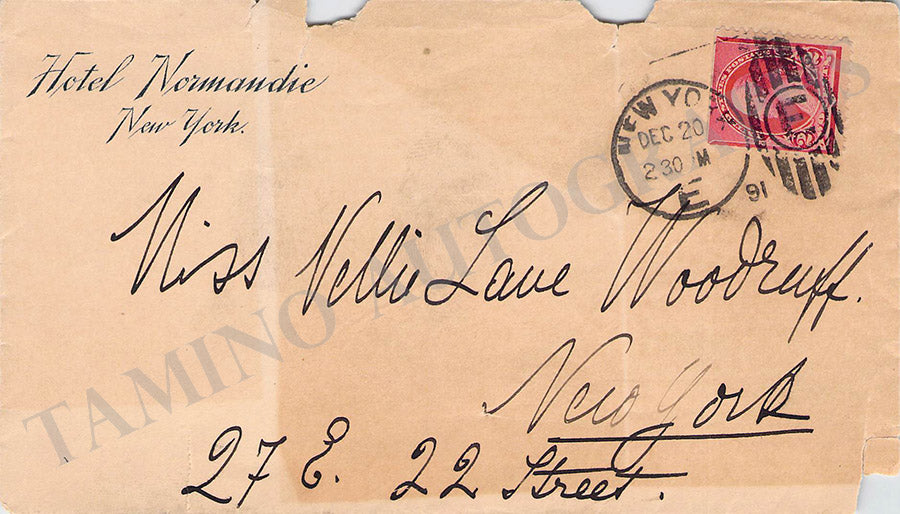 Hotel Normandie
New York.
NEW YORK
DEC 20
230 M
91
E
E
Miss Nellie Lane Woodruff.
New York
27 E. 22 Street.
TAMINO AUTOGRAPHS